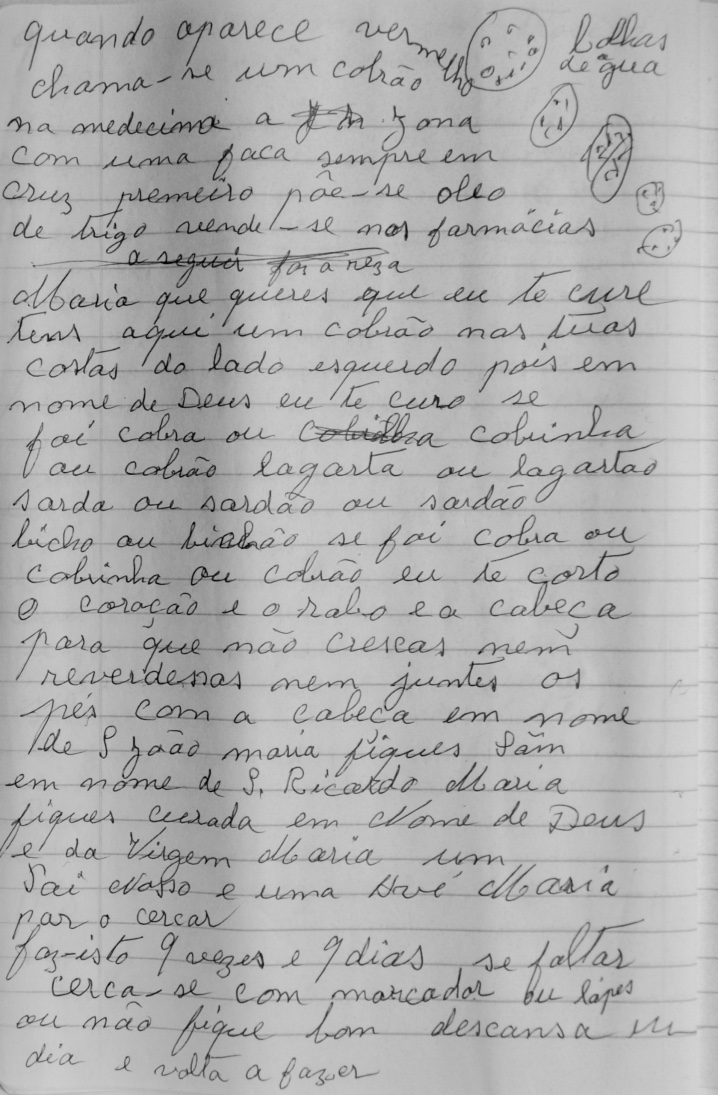 quando aparece vermelho bolhas
chama-se um cobrão de agua
na medecina a zona
com uma faca sempre em
cruz premeiro põe-se oleo
de trigo vende-se nas farmácias
a seguir faz a reza
Maria que queres que eu te cure
tens aqui um cobrão nas tuas
costas do lado esquerdo pois em
nome de Deus eu te curo se
foi cobra ou cobinha
ou cobrão lagarta ou lagartão
sarda ou sardão ou sardão
bicho ou bichão se foi cobra ou
cobrinha ou cobrão eu te corto
o coração e o rabo e a cabeça
para que não crescas nem
reverdessas nem juntes os
pés com a cabeca em nome
de S João maria fiques Sám
em nome de S. Ricardo Maria
fiques curada em Nome de Deus
e da Virgem Maria um
Pai Nosso e uma Avé Maria
par o cercar
faz-isto 9 vezes e 9 dias se faltar
cerca-se com marcador ou lápes
ou não fique bom descansa um
dia e volta a fazer